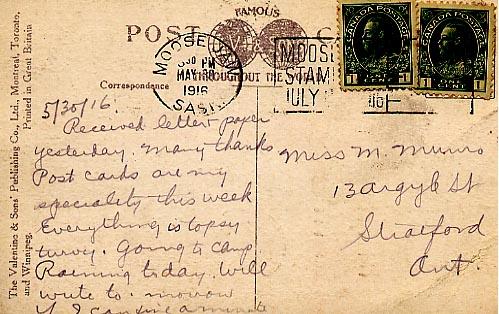 FAMOUS
POST C
THROUGHOUT THE
MOOSE JAW
30 PM
MAY 30
1916
SASK
MOOSE
STAM
JULY
CANADA POSTAGE
1 CENT 1
CANADA POSTAGE
1 CENT 1
Correspondence
The Valentine & Sons' Publishing Co., Ltd., Montreal, Toronto,
and Winnipeg. Printed in Great Britain
5/30/16.
Received letter paper
yesterday. Many thanks
Post cards are my
speciality this week
Everything is topsy
turvy. Going to camp
Raining today. Will
write to-morrow
if I can find a minute
Miss M. Munro
13 Argyle St
Stratford
Ont.